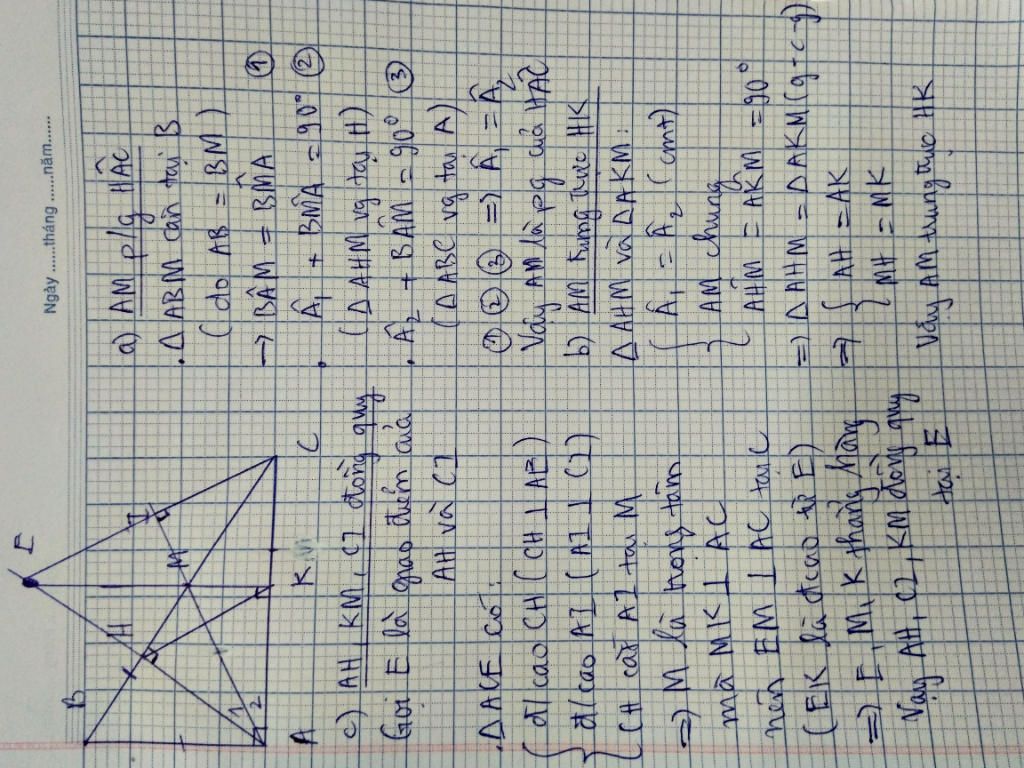 Ngày ......tháng ......năm......
B
H
E
I
M
1
2
A
K
C
a) AM p/g HÂC
. ΔABM cân tại B
(do AB = BM)
→ BÂM = BM̂A ①
. Â₁ + BM̂A = 90° ②
(ΔAHM vg tại H)
. Â₂ + BÂM = 90° ③
(ΔABC vg tại A)
① ② ③ => Â₁ = Â₂
Vậy AM là pg của HÂC
b) AM trung trực HK
ΔAHM và ΔAKM:
Â₁ = Â₂ (cmt)
AM chung
AĤM = AK̂M = 90°
=> ΔAHM = ΔAKM (g-c-g)
=> { AH = AK
MH = MK
Vậy AM trung trực HK
c) AH, KM, CI đồng quy
Gọi E là giao điểm của
AH và CI
. ΔACE có:
đ/cao CH (CH ⊥ AB)
đ/cao AI (AI ⊥ CI)
CH cắt AI tại M
=> M là trọng tâm
mà MK ⊥ AC
nên EM ⊥ AC tại C
(EK là đ/cao từ E)
=> E, M, K thẳng hàng
Vậy AH, CI, KM đồng quy
tại E